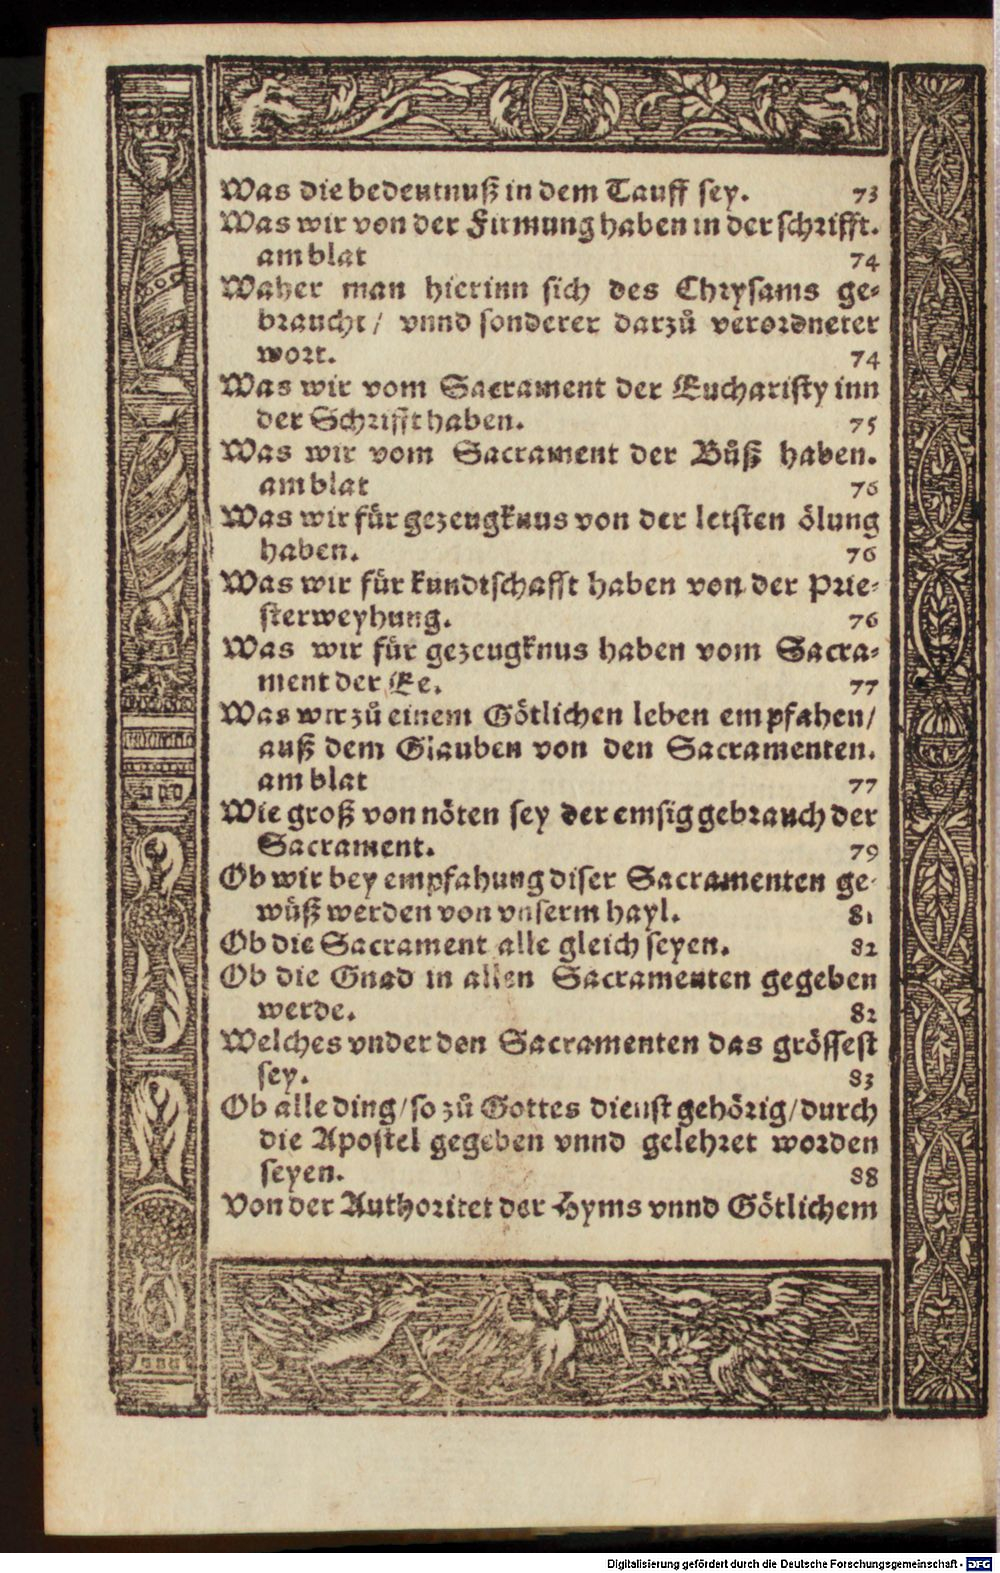 Was die bedeutnuß in dem Tauff sey. 73
Was wir von der Firmung haben in der schrifft.
am blat 74
Waher man hierinn sich des Chrysams ge-
braucht / vnnd sonderer darzů verordneter
wort. 74
Was wir vom Sacrament der Eucharisty inn
der Schrifft haben. 75
Was wir vom Sacrament der Bůß haben.
am blat 76
Was wir für gezeugknus von der letsten ölung
haben. 76
Was wir für kundtschafft haben von der Prie-
sterweyhung. 76
Was wir für gezeugknus haben vom Sacra-
ment der Ee. 77
Was wir zů einem Götlichen leben empfahen /
auß dem Glauben von den Sacramenten.
am blat 77
Wie groß von nöten sey der emsig gebrauch der
Sacrament. 79
Ob wir bey empfahung diser Sacramenten ge-
wüß werden von vnserm hayl. 81
Ob die Sacrament alle gleich seyen. 82
Ob die Gnad in allen Sacramenten gegeben
werde. 82
Welches vnder den Sacramenten das grössest
sey. 83
Ob alle ding / so zů Gottes dienst gehörig / durch
die Apostel gegeben vnnd gelehret worden
seyen. 88
Von der Authoritet der Hyms vnnd Götlichem
Digitalisierung gefördert durch die Deutsche Forschungsgemeinschaft - DFG